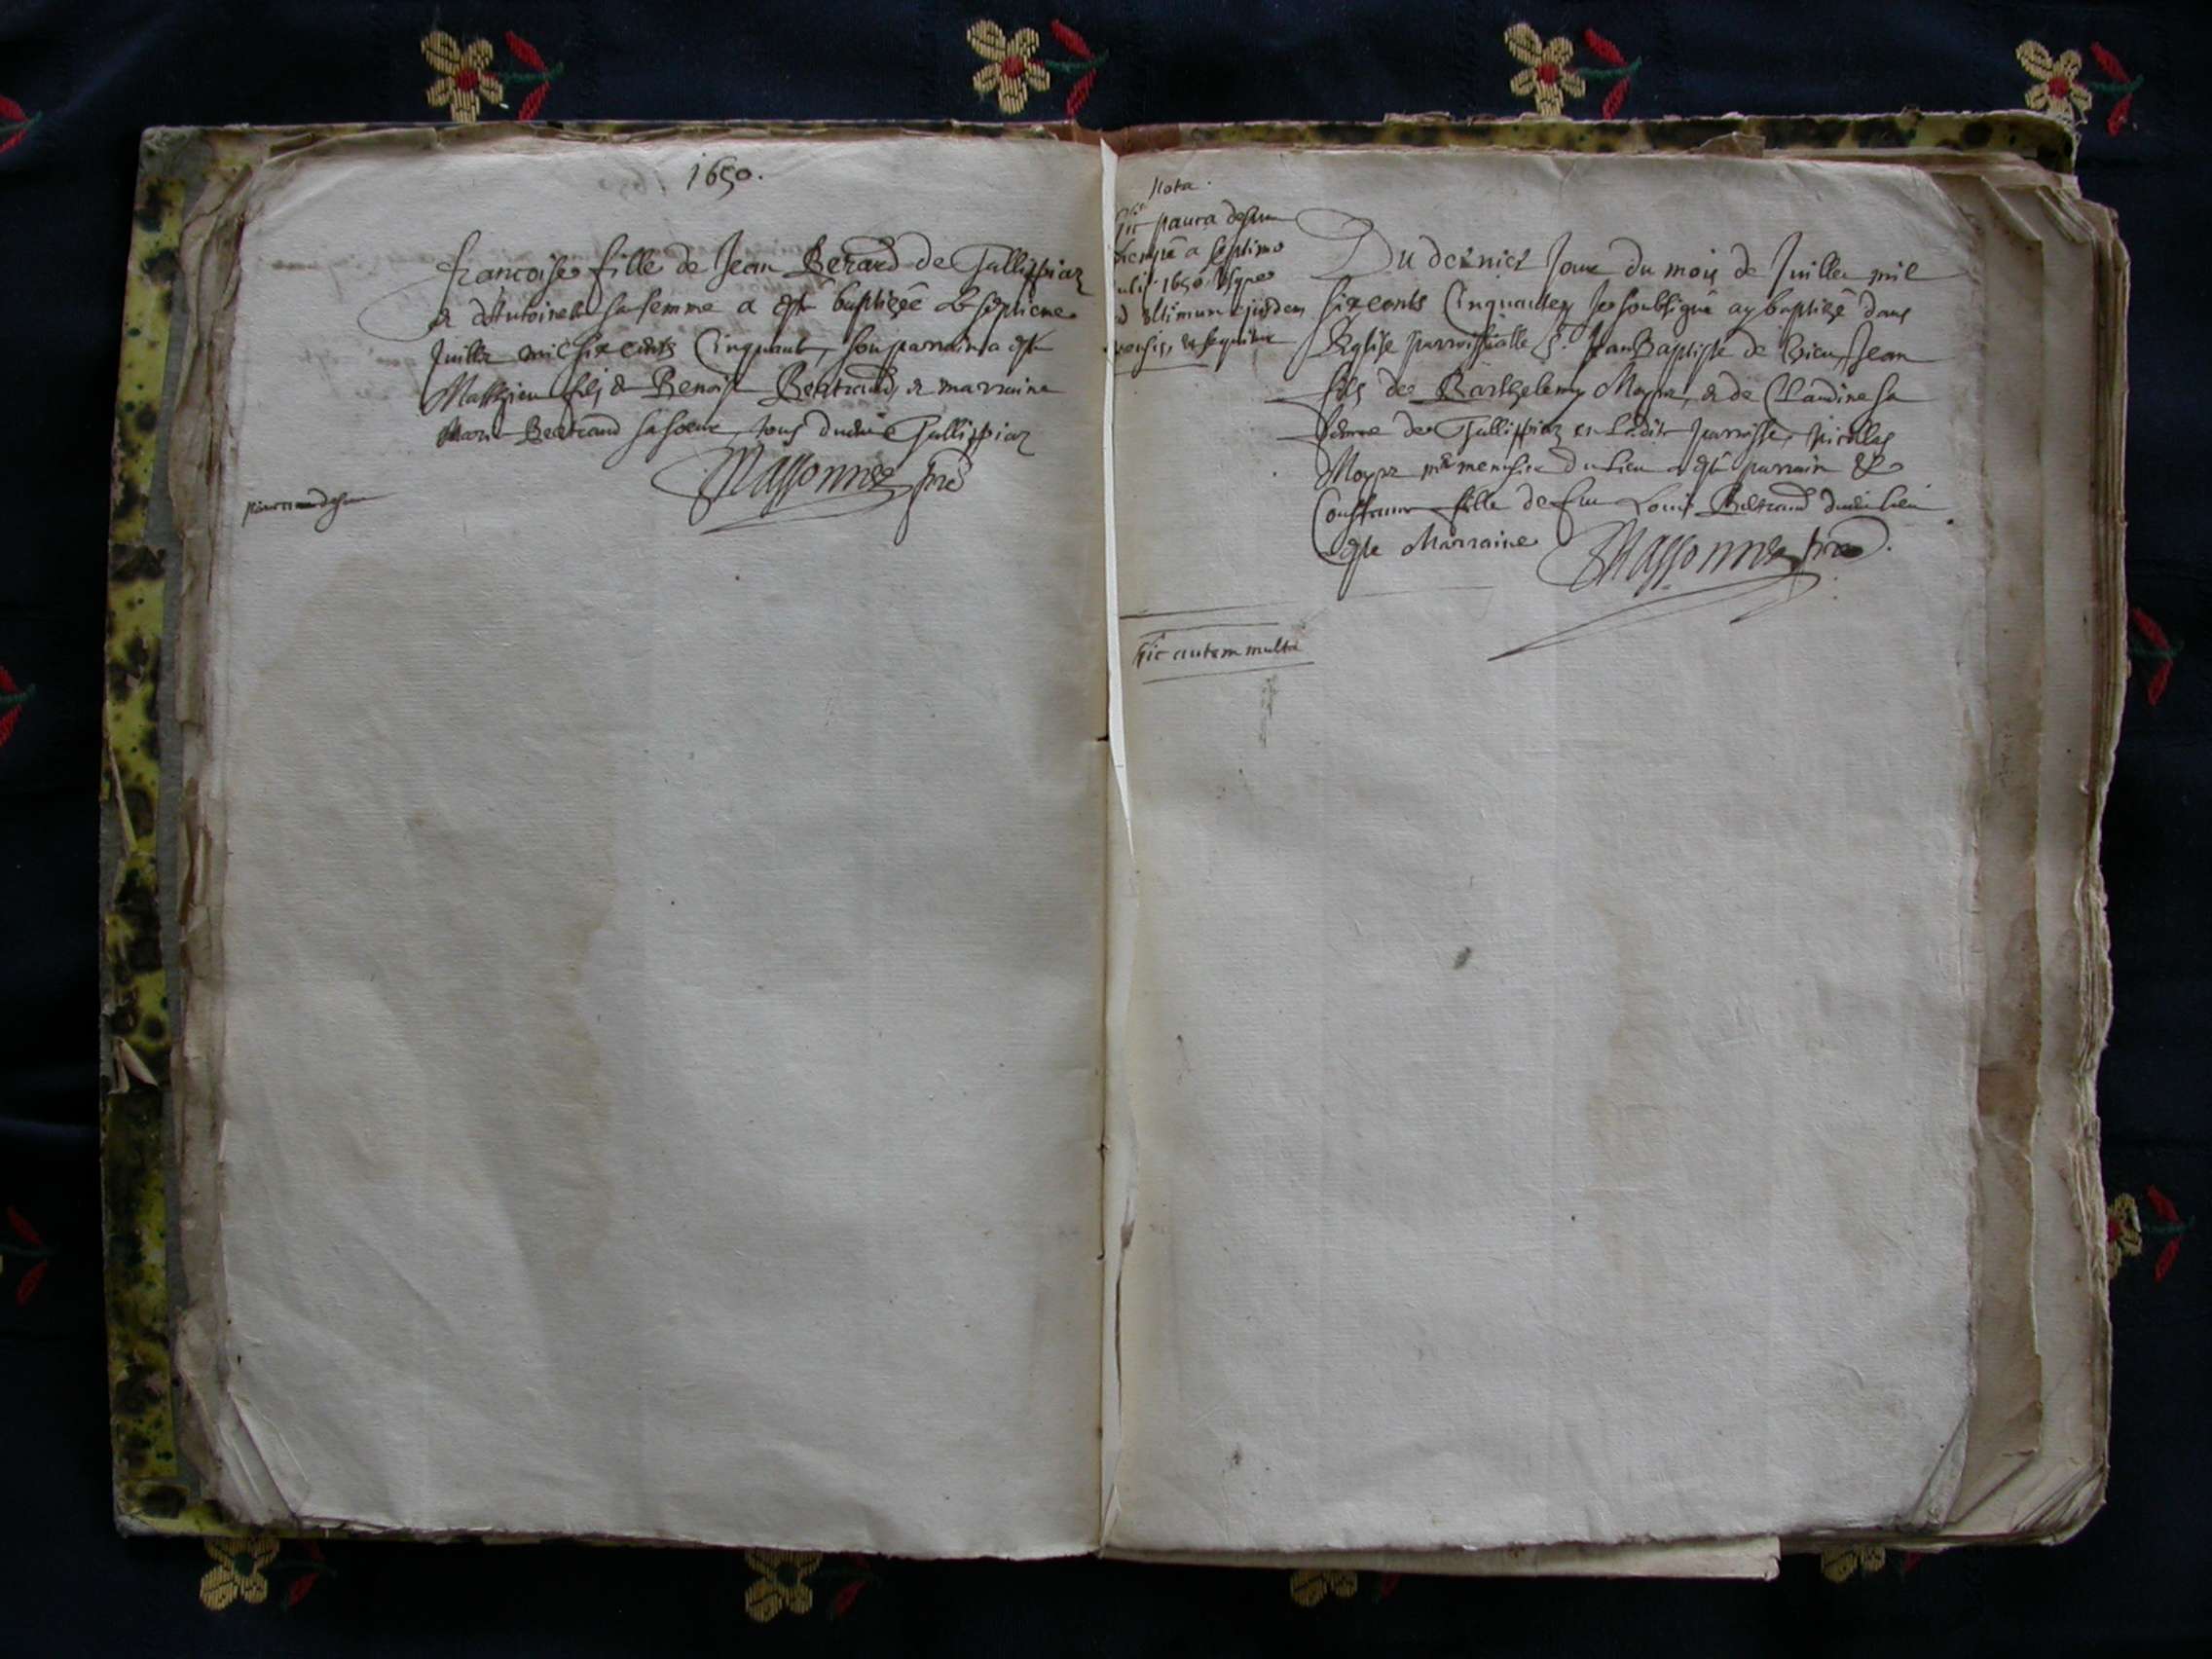 1650.
francoise fille de Jean Berard de Tallissiaz
& d'Antoinette sa femme a esté baptizée le septieme
Juillet mil six cents Cinquante, son parrain a esté
Matthieu fils de Benoist Bertrand, & marraine
Marie Bertrand sa soeur, tous dudit Tallissiaz
Massonnet pre
pauca desunt
Nota.
hic pauca desunt
a septimo
julii 1650 usque
ad ultimum ejusdem
mensis, ut sequitur
Du dernier Jour du mois de Juillet mil
six cents Cinquante, Je soubsigné ay baptizé dans
l'Eglise parrossialle St. Jean Baptiste de Jean
fils de Barthelemy Moyne, & de Claudine sa
femme de Tallissiaz en ladite parrosse, Nicollas
Moyne me menusier du lieu a esté parrain &
Constance fille de feu Louis Bertrand dudit lieu
este Marraine Massonnet pre.
hic autem multa